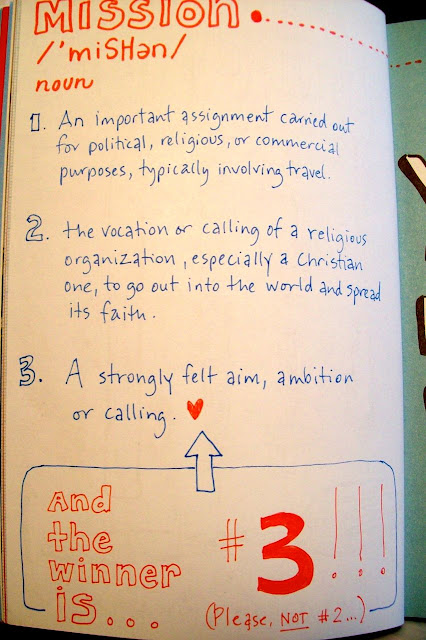 Mission
/'miSHən/
noun
1. An important assignment carried out
for political, religious, or commercial
purposes, typically involving travel.
2. the vocation or calling of a religious
organization, especially a Christian
one, to go out into the world and spread
its faith.
3. A strongly felt aim, ambition
or calling. ♥
And
the
winner
is...
#3!!!
(Please, NOT #2...)